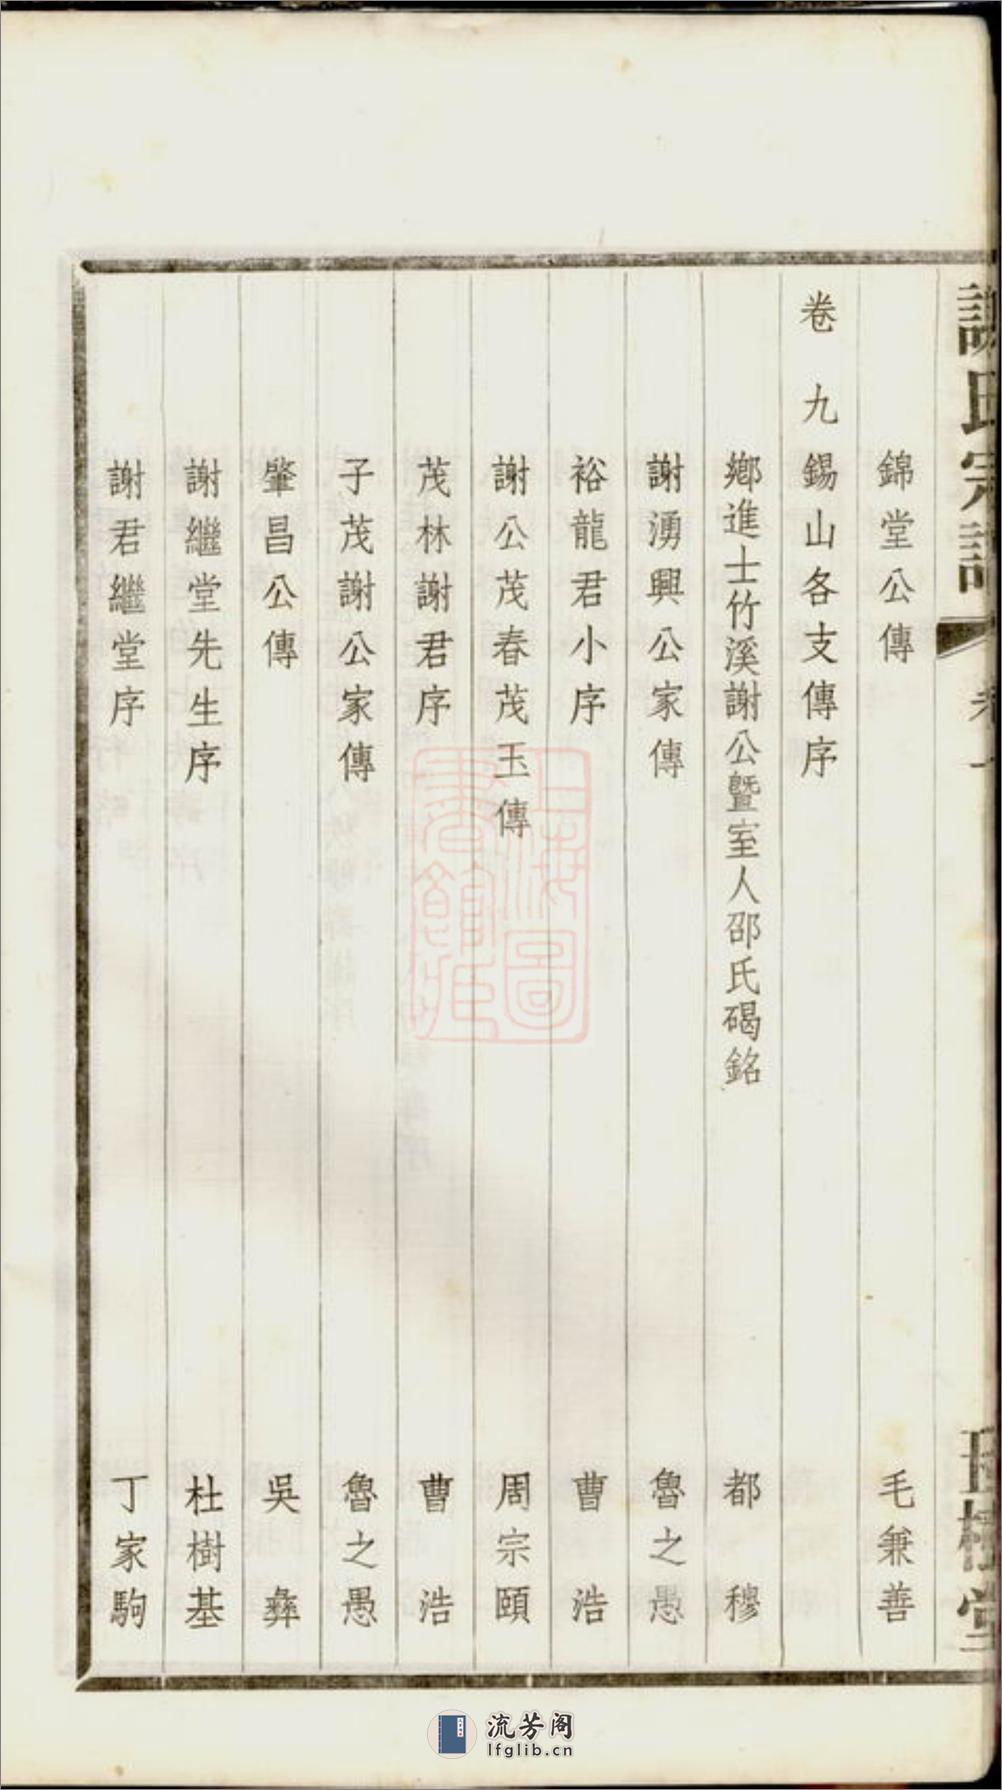 謝氏宗譜 卷一
錦堂公傳 毛兼善
卷九 錫山各支傳序
鄉進士竹溪謝公暨室人邵氏碣銘 都穆
謝湧興公家傳 魯之愚
裕龍君小序 曹浩
謝公茂春茂玉傳 周宗頤
茂林謝君序 曹浩
子茂謝公家傳 魯之愚
肇昌公傳 吳彝
謝繼堂先生序 杜樹基
謝君繼堂序 丁家駒
上海圖書館藏
流芳阁
lfglib.cn